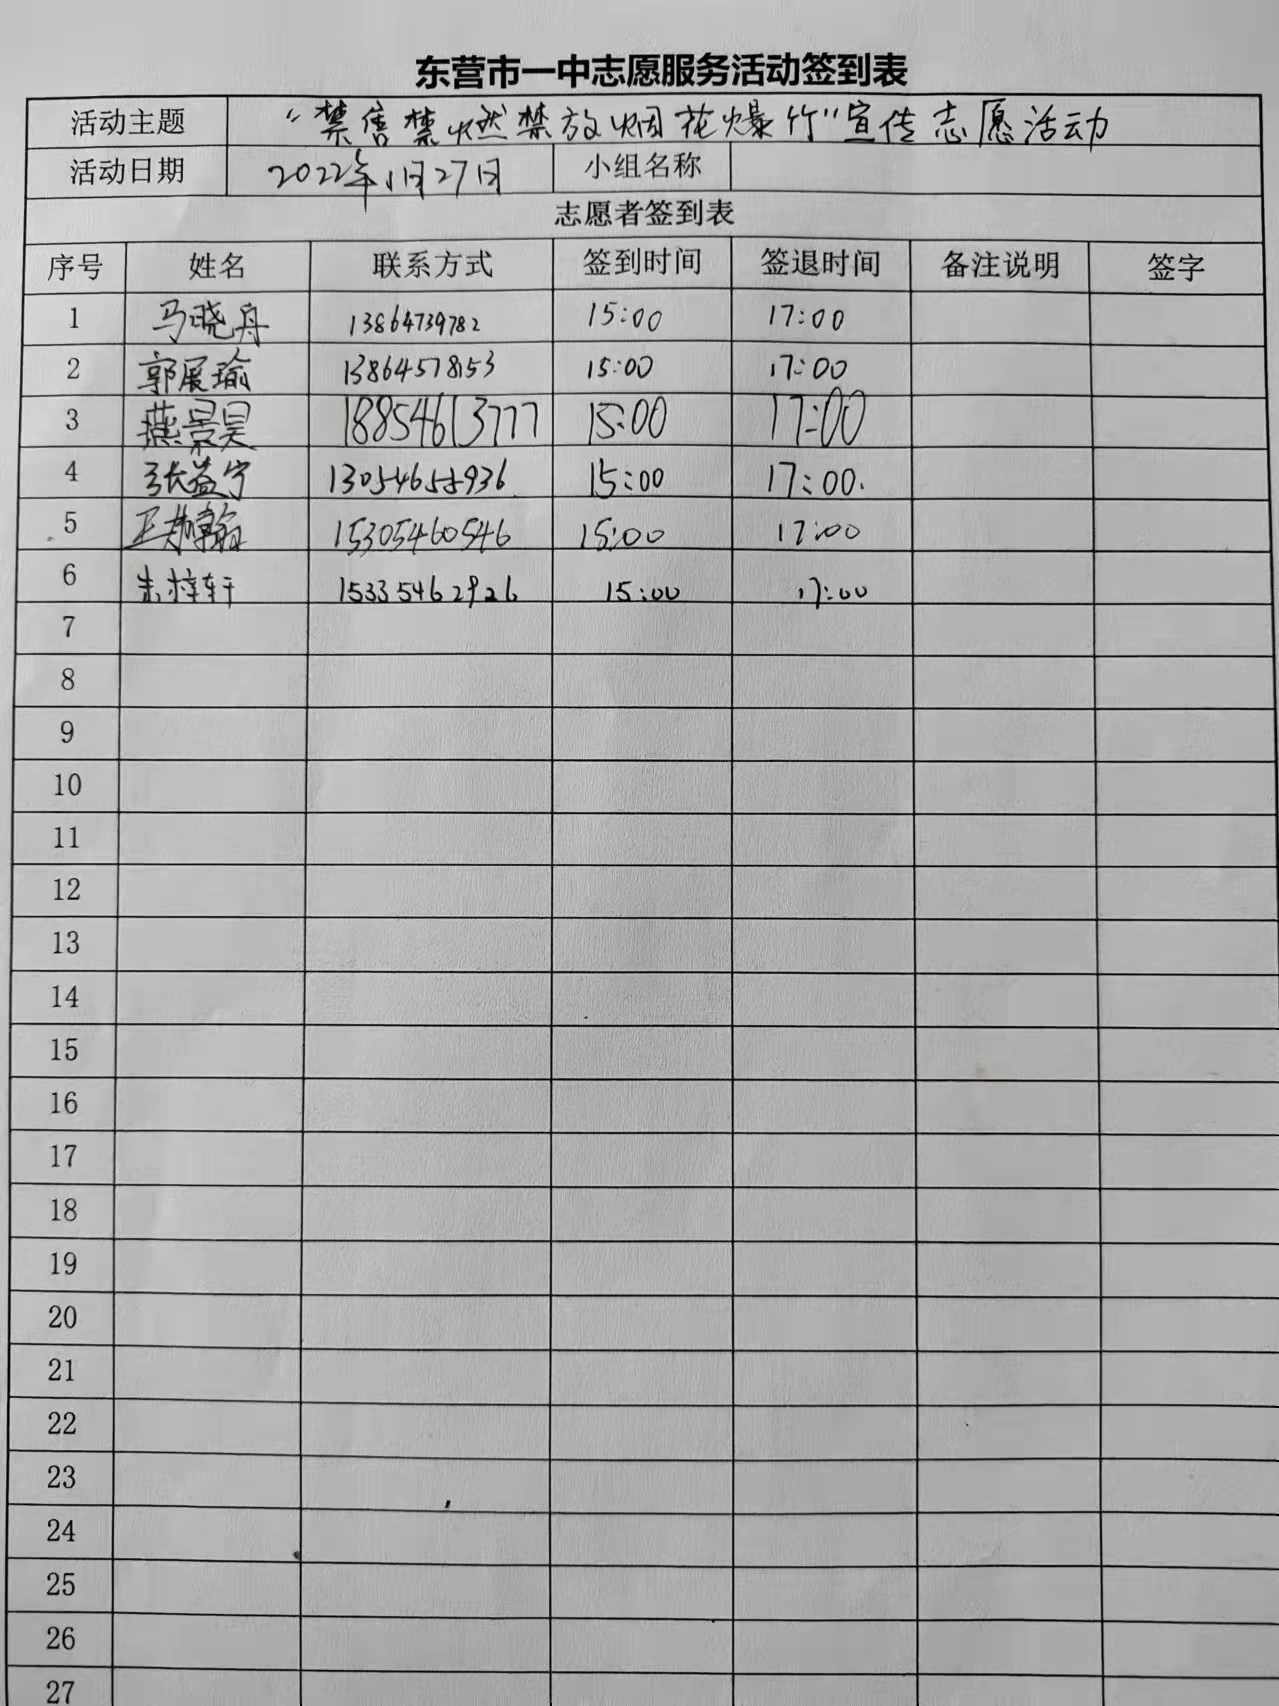 东营市一中志愿服务活动签到表
活动主题 “禁售禁燃禁放烟花爆竹”宣传志愿活动
活动日期 2022年1月27日 小组名称
志愿者签到表
序号 姓名 联系方式 签到时间 签退时间 备注说明 签字
1 马晓舟 13864739782 15:00 17:00
2 郭展瑜 13864578153 15:00 17:00
3 燕景昊 18854613777 15:00 17:00
4 张益宁 13054655936 15:00 17:00.
5 15305460546 15:00 17:00
6 朱梓轩 15335462926 15:00 17:00
7
8
9
10
11
12
13
14
15
16
17
18
19
20
21
22
23
24
25
26
27